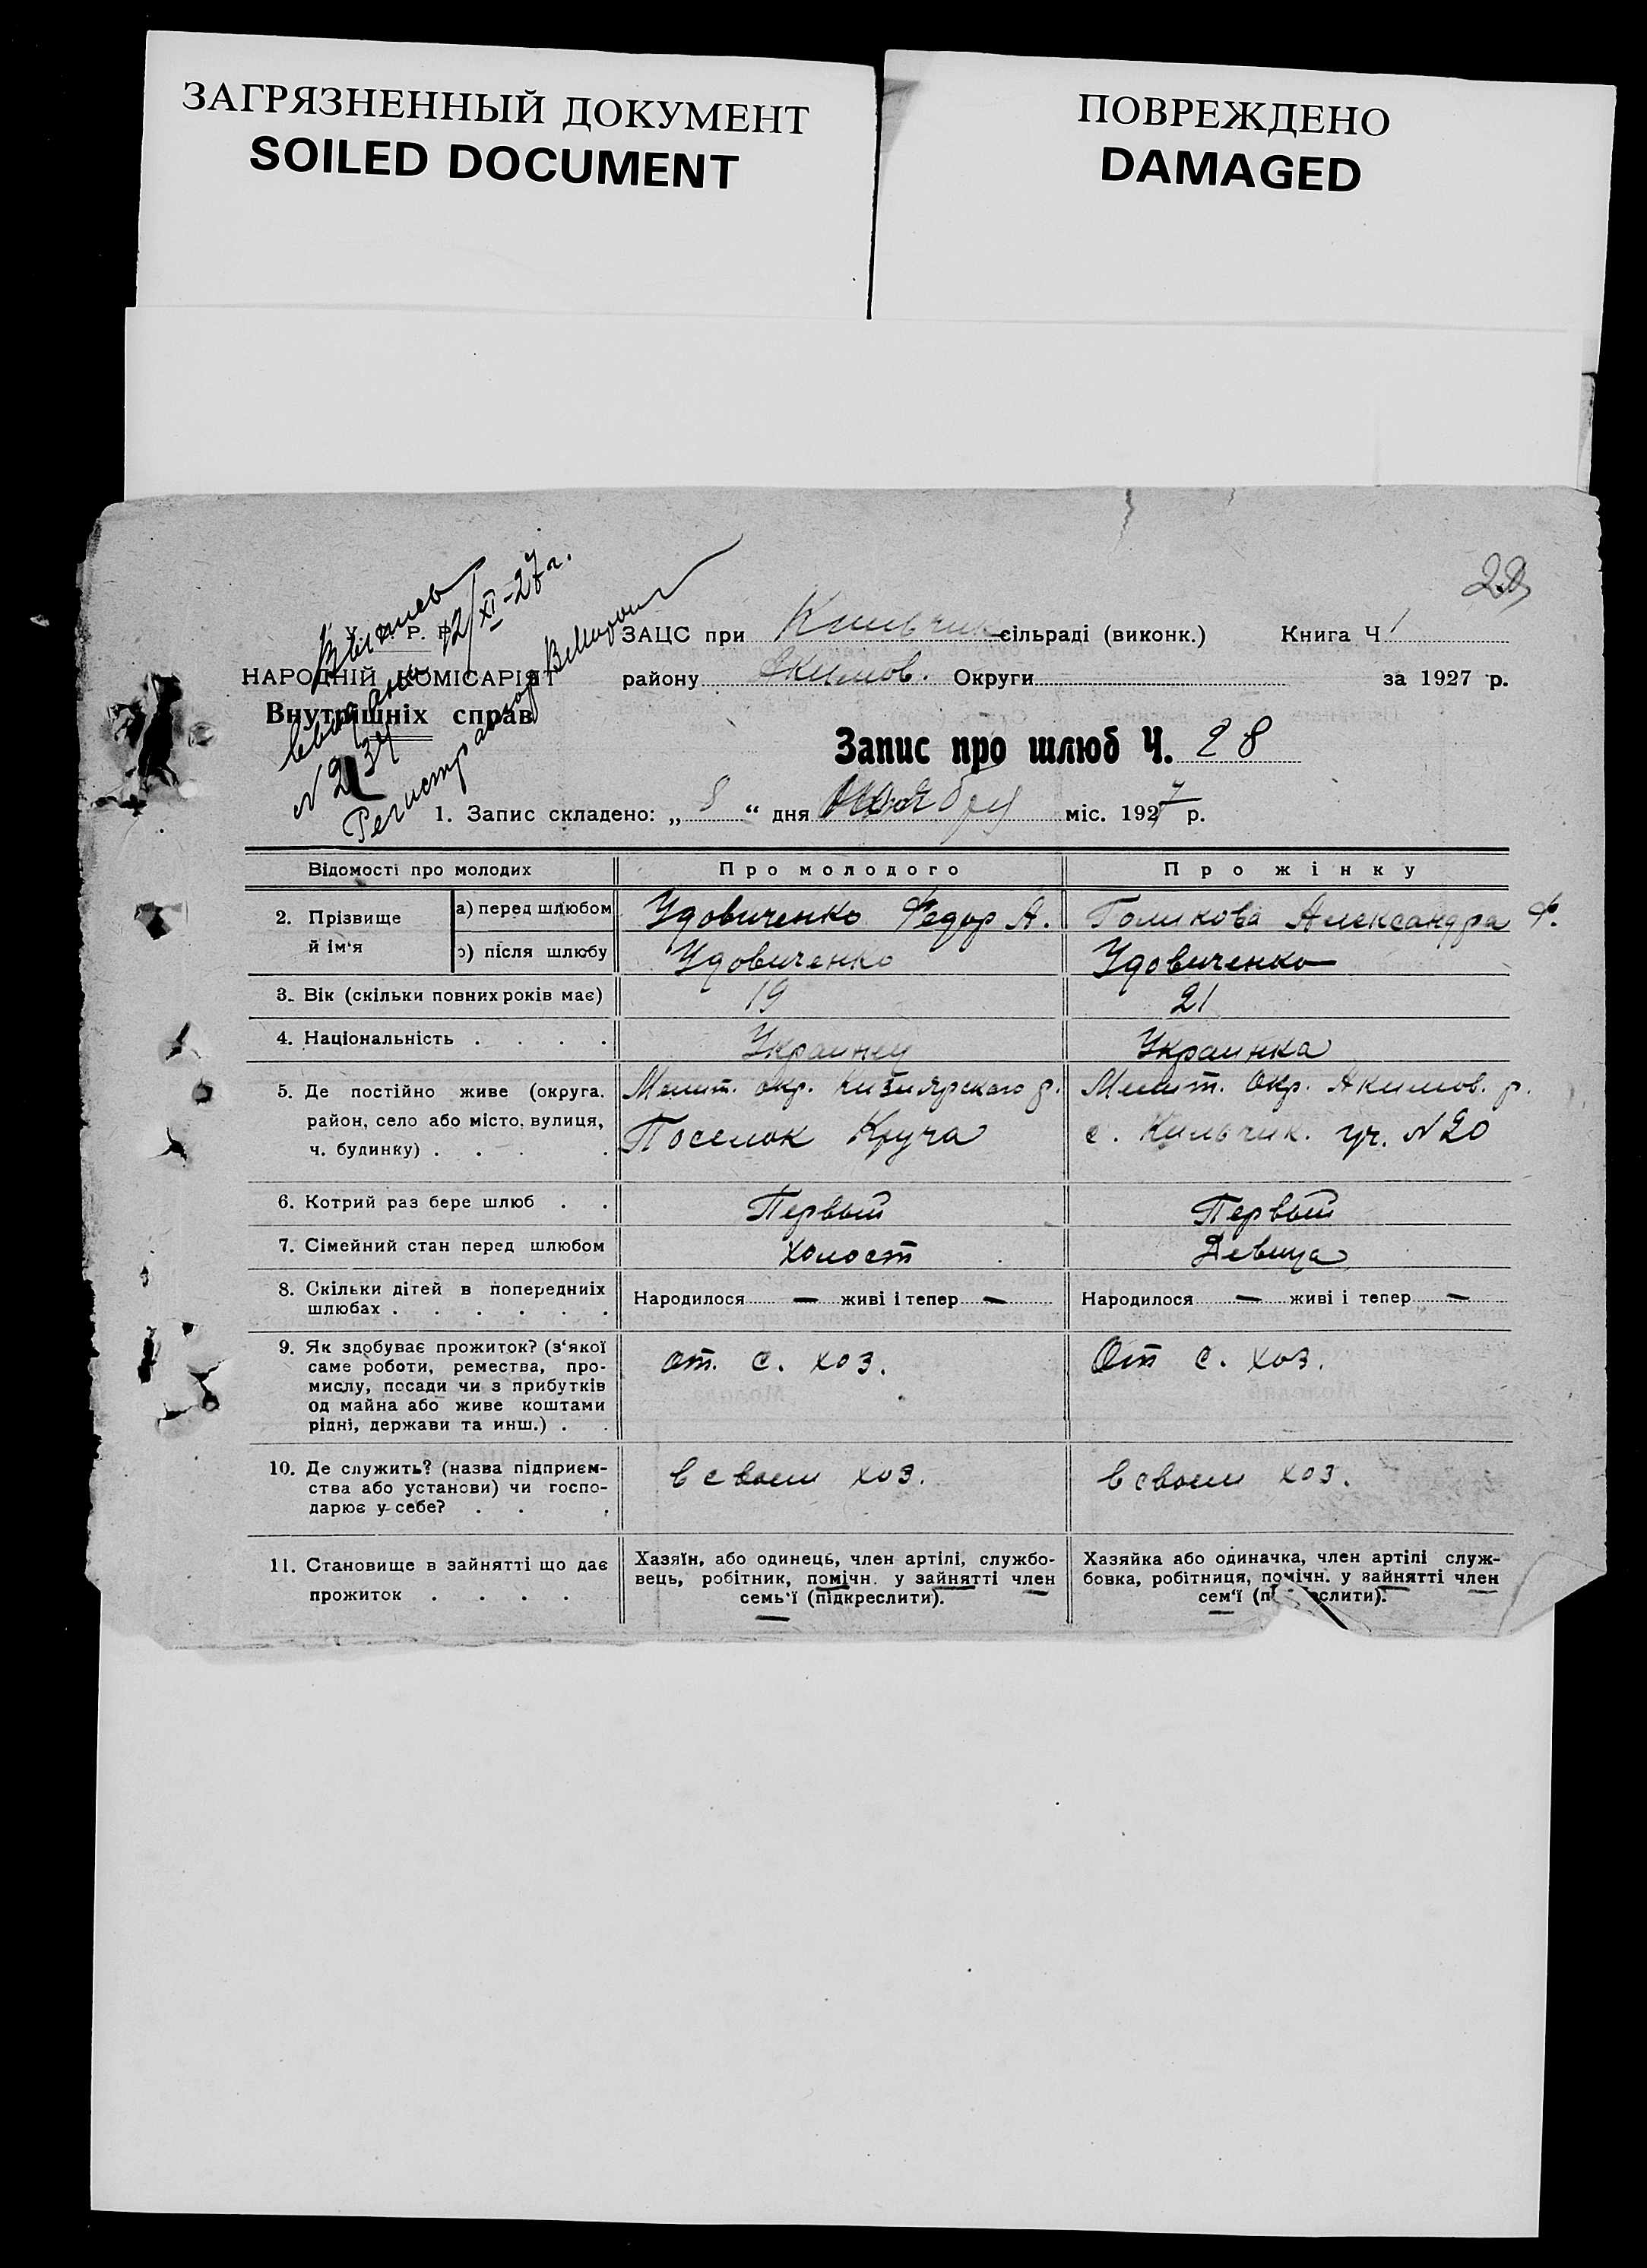 ЗАГРЯЗНЕННЫЙ ДОКУМЕНТ
SOILED DOCUMENT
ПОВРЕЖДЕНО
DAMAGED
28
Выпись
выдана 12/XI-27г.
N 2134
Регистратор
НАРОДНІЙ КОМІСАРІЯТ
Внутрішніх справ
ЗАЦС при Кильчик сільраді (виконк.) Книга Ч 1
району Акимов. Округи за 1927 р.
Запис про шлюб Ч. 28
1. Запис складено: „ 8 “ дня Октября міс. 1927 р.
Відомості про молодих Про молодого Про жінку
2. Прізвище й ім‘я
а) перед шлюбом Удовиченко Федор А. Голикова Александра Ф.
б) після шлюбу Удовиченко Удовиченко
3. Вік (скільки повних років має) 19 21
4. Національність . . . . Украинец Украинка
5. Де постійно живе (округа, Мелит. окр. Кизиярского р. Мелит. Окр. Акимов. р.
район, село або місто, вулиця, Поселок Круча с. Кильчик. уч. N 20
ч. будинку) . . .
6. Котрий раз бере шлюб . . Первый Первый
7. Сімейний стан перед шлюбом Холост Девица
8. Скільки дітей в попередниіх Народилося — живі і тепер — Народилося — живі і тепер —
шлюбах . . . . . .
9. Як здобуває прожиток? (з‘якої от. с. хоз. От с. хоз.
саме роботи, ремества, про-
мислу, посади чи з прибутків
од майна або живе коштами
рідні, держави та инш.) . .
10. Де служить? (назва підприєм- в своем хоз. в своем хоз.
ства або установи) чи госпо-
дарює у себе? . . .
11. Становище в зайнятті що дає
прожиток . . . .
Хазяїн, або одинець, член артілі, службо-
вець, робітник, помічн. у зайнятті член
семь‘ї (підкреслити).
Хазяйка або одиначка, член артілі служ-
бовка, робітниця, помічн. у зайнятті член
сем‘ї